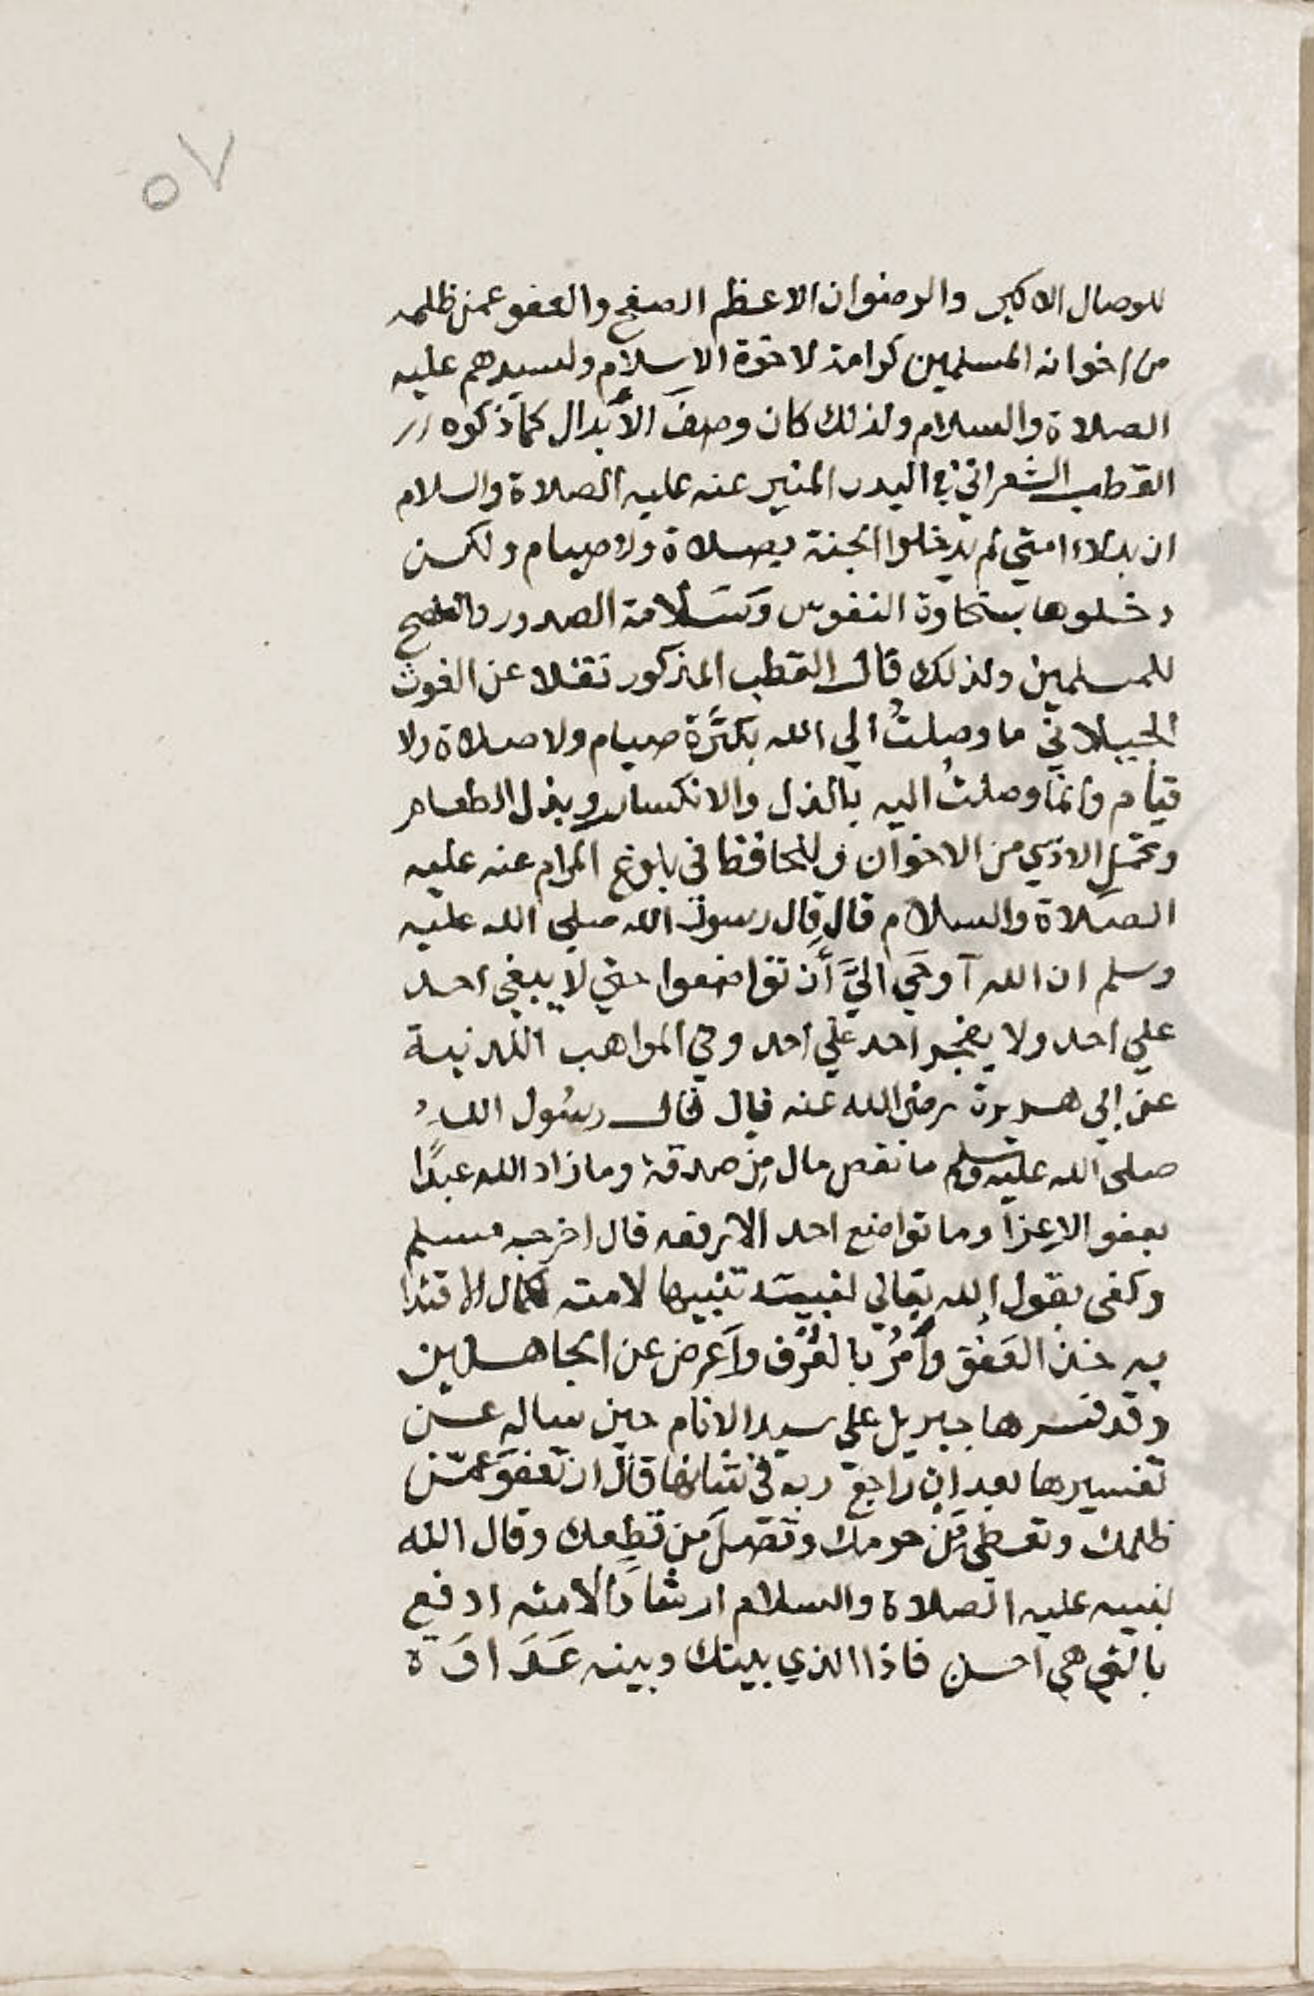 ٥٧
للوصال الاكبر والرضوان الاعظم الصفح والعفو عمن ظلمه
من اخوانه المسلمين كرامة لاخوة الاسلام ولسيدهم عليه
الصلاة والسلام ولذلك كان وصفَ الأبدال كما ذكره
القطب الشعراني في البدر المنير عنه عليه الصلاة والسلام
ان بدلاء امتي لم يدخلوا الجنة بصلاة ولا صيام ولكن
دخلوها بسخاوة النفوس وَسَلامة الصدور والنصح
للمسلمين ولذلك قال القطب المذكور نقلا عن الغوث
الجيلاني ما وصلتُ الي الله بكثرة صيام ولا صلاة ولا
قيام وانما وصلتُ اليه بالذل والانكسار وبذل الطعام
وتحمل الاذي من الاخوان وللحافظ في بلوغ المرام عنه عليه
الصلاة والسلام قال قال رسول الله صلي الله عليه
وسلم ان الله أوحَي اليَّ أَن تواضعوا حتي لا يبغي احد
علي احد ولا يفخر احد علي احد وفي المواهب اللدنية
عن ابي هريرة رضي الله عنه قال قال رسُول اللهُ
صلي الله عليه وسلم ما نقص مال مِن صدقة وما زاد الله عبدًا
بعفو الا عِزاً وما تواضع احد الا رفعه قال اخرجه مسلم
وكفي بقول الله تعالي لنبيه تنبيها لامته لكمال الاقتدا
به خذ العَفْوَ وأْمُرْ بالعُرْف وأَعرض عن الجاهلين
وقد فسرها جبريل علي سيد الانام حين ساله عن
تفسيرها بعد ان راجع ربه في شانها قال ان تعفوَ عمّن
ظلمك وتعطي مَنْ حرمك وتَصِلَ مَن قطعك وقال الله
لنبيه عليه الصلاة والسلام ارشاداً لامته ادفع
بالتي هي احسن فاذا الذي بينك وبينه عَدَاوَة